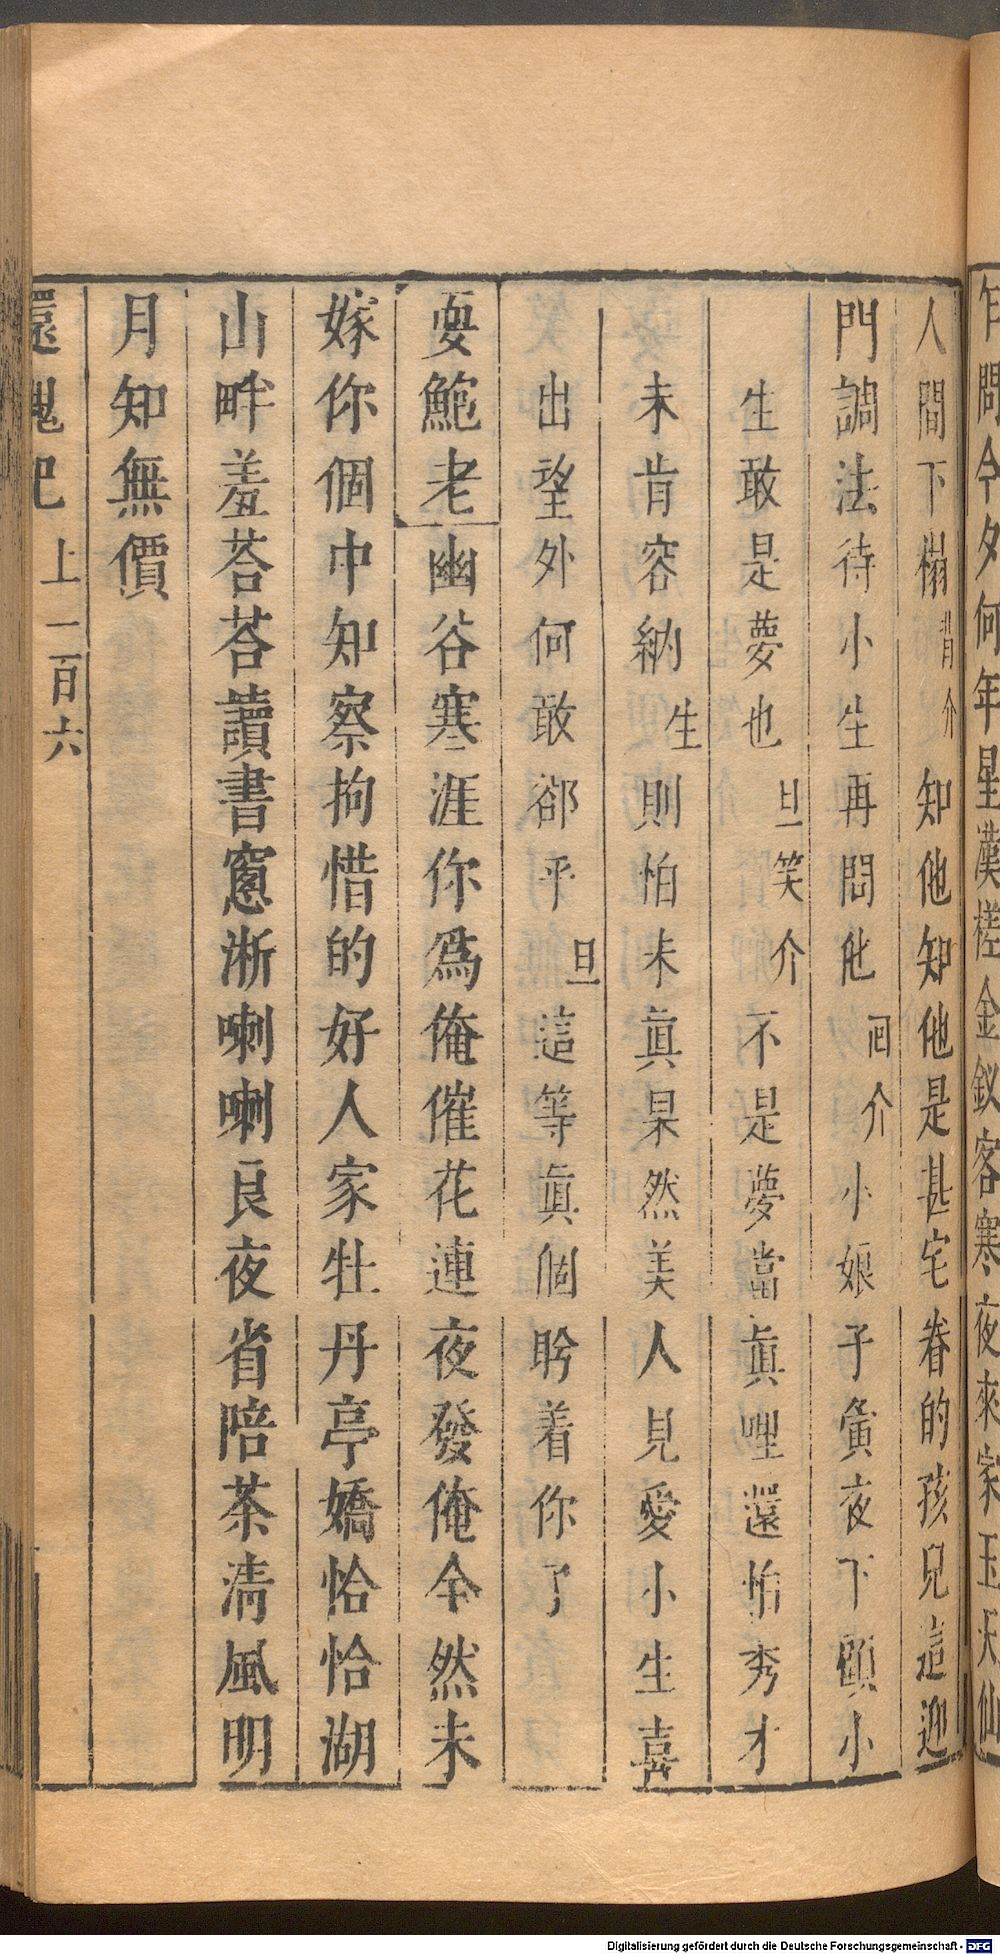 乍問今夕何年星漢槎金釵客寒夜來家玉天仙
人間下榻背介知他知他是甚宅眷的孩兒這迎
門調法待小生再問他回介小娘子夤夜下顧小
生敢是夢也旦笑介不是夢當真哩還怕秀才
未肯容納生則怕未真果然美人見愛小生喜
出望外何敢卻乎旦這等真個盻着你了
耍鮑老幽谷寒涯你為俺催花連夜發俺仝然未
嫁你個中知察拘惜的好人家牡丹亭嬌恰恰湖
山畔羞荅荅讀書窻淅喇喇良夜省陪茶清風明
月知無價
還魂記 上 一百六
Digitalisierung gefördert durch die Deutsche Forschungsgemeinschaft - DFG